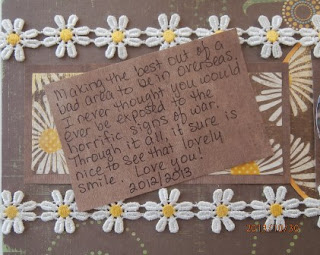 Making the best out of a
bad area to be in overseas.
I never thought you would
ever be exposed to the
horrific signs of war.
Through it all, it sure is
nice to see that lovely
smile. Love you!
2012/2013